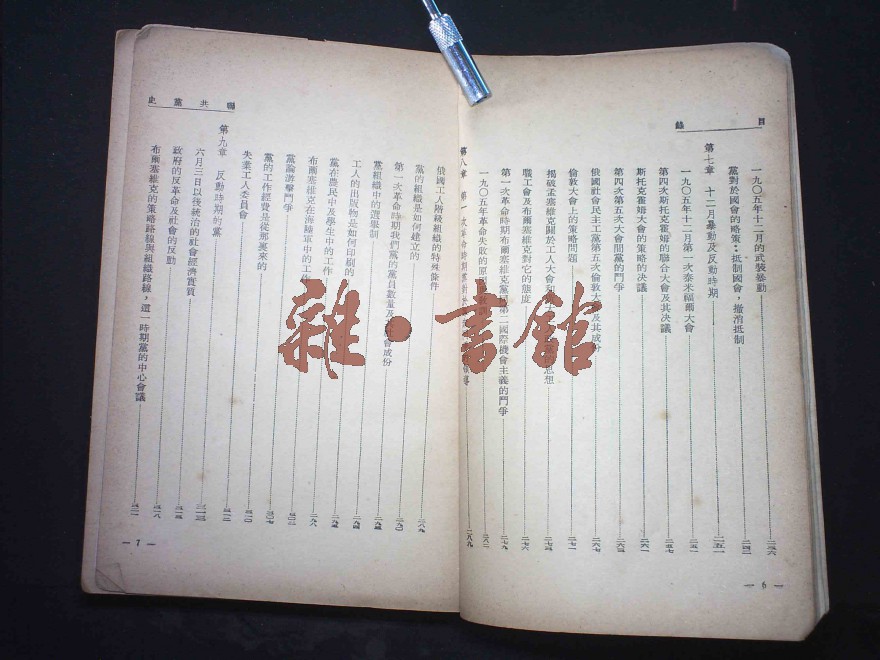 目錄
一九〇五年十二月的武裝暴動 二三六
黨對於國會的略策：抵制國會，撤消抵制 二四二
第七章 十二月暴動及反動時期 二五一
一九〇五年十二月第一次泰米福爾大會 二五一
第四次斯托克霍姆的聯合大會及其決議 二五七
斯托克霍姆大會的策略的決議 二六一
第四次第五次大會間黨的鬥爭 二六三
俄國社會民主工黨第五次倫敦大會及其成份 二六七
倫敦大會上的策略問題 二七一
揭破孟塞維克關於工人大會和 思想 二七三
職工會及布爾塞維克對它的態度 二七六
第一次革命時期布爾塞維克黨 第二國際機會主義的鬥爭 二七九
一九〇五年革命失敗的原 教訓 二八二
第八章 第一次革命時期黨對於 二八九
— 6 —
聯共黨史
俄國工人階級組織的特殊條件
黨的組織是如何建立的 二八九
第一次革命時期我們黨的黨員數量及 會成份 二九〇
黨組織中的選舉制 二九三
工人的出版物是如何印刷的 二九四
黨在農民中及學生中的工作 二九五
布爾塞維克在海陸軍中的工作 二九八
黨論游擊鬥爭 三〇二
黨的工作經費是從那裏來的 三〇七
失業工人委員會 三一〇
第九章 反動時期的黨 三一二
六月三日以後統治的社會經濟實質 三一三
政府的反革命及社會的反動 三一五
布爾塞維克的策略路線與組織路線，這一時期黨的中心會議 三一八
— 7 —
雜·書館